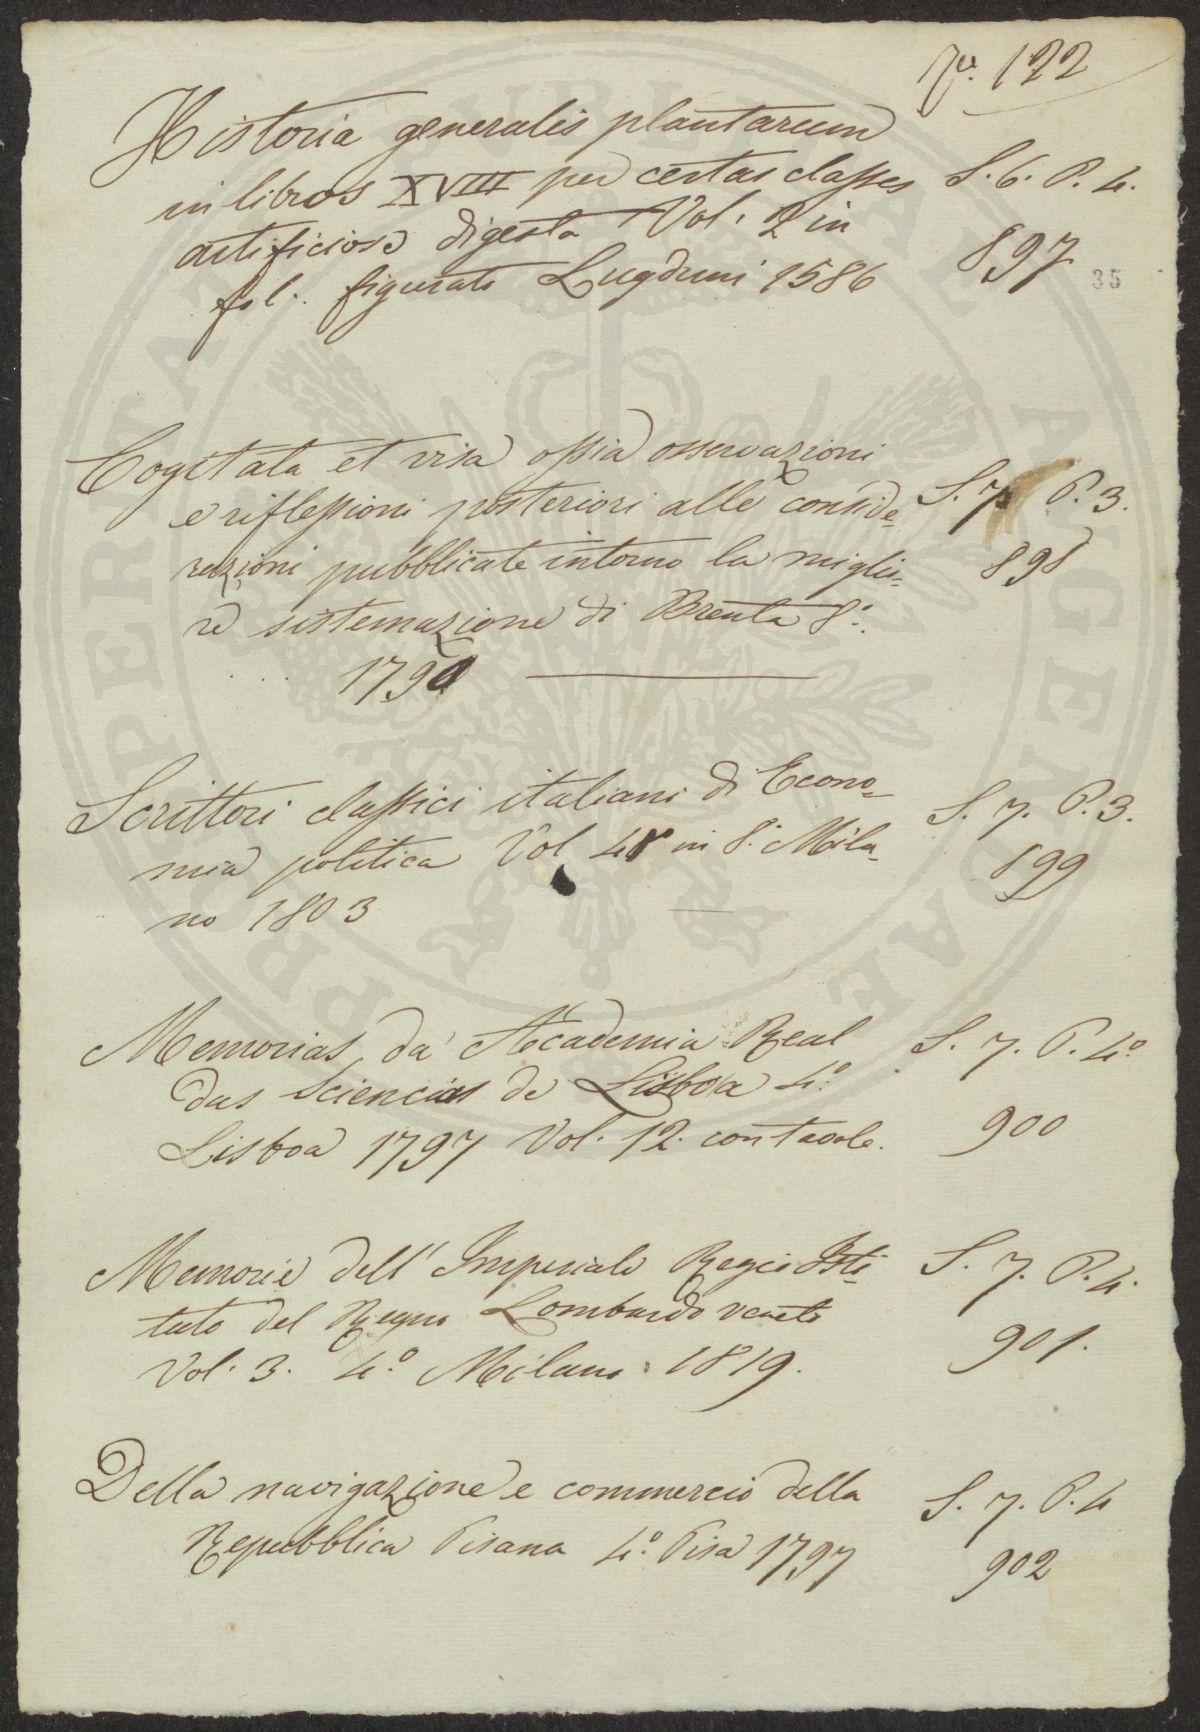 122
Historia generalis plantarum
in libros XVIII per certas classes S. 6. P. 4.
artificiose digesta Vol. 2 in 897
fol. figurato Lugduni 1586
35
Cogitata et visa ossia osservazioni
e riflessioni posteriori alle conside= S. 7. P. 3.
razioni pubblicate intorno la miglio= 898
re sistemazione di Brenta 8.°
1790
Scrittori classici italiani di Econo= S. 7. P. 3.
mia politica Vol 48 in 8.° Mila= 899
no 1803
Memorias da Academia Real S. 7. P. 4.°
das Sciencias de Lisboa 4.°
Lisboa 1797 Vol. 12. con tavole. 900
Memorie dell' Imperiale Regio Isti= S. 7. P. 4.
tuto del Regno Lombardo veneto
Vol. 3. 4.° Milano 1819. 901.
Della navigazione e commercio della S. 7. P. 4
Repubblica Pisana 4.° Pisa 1797 902